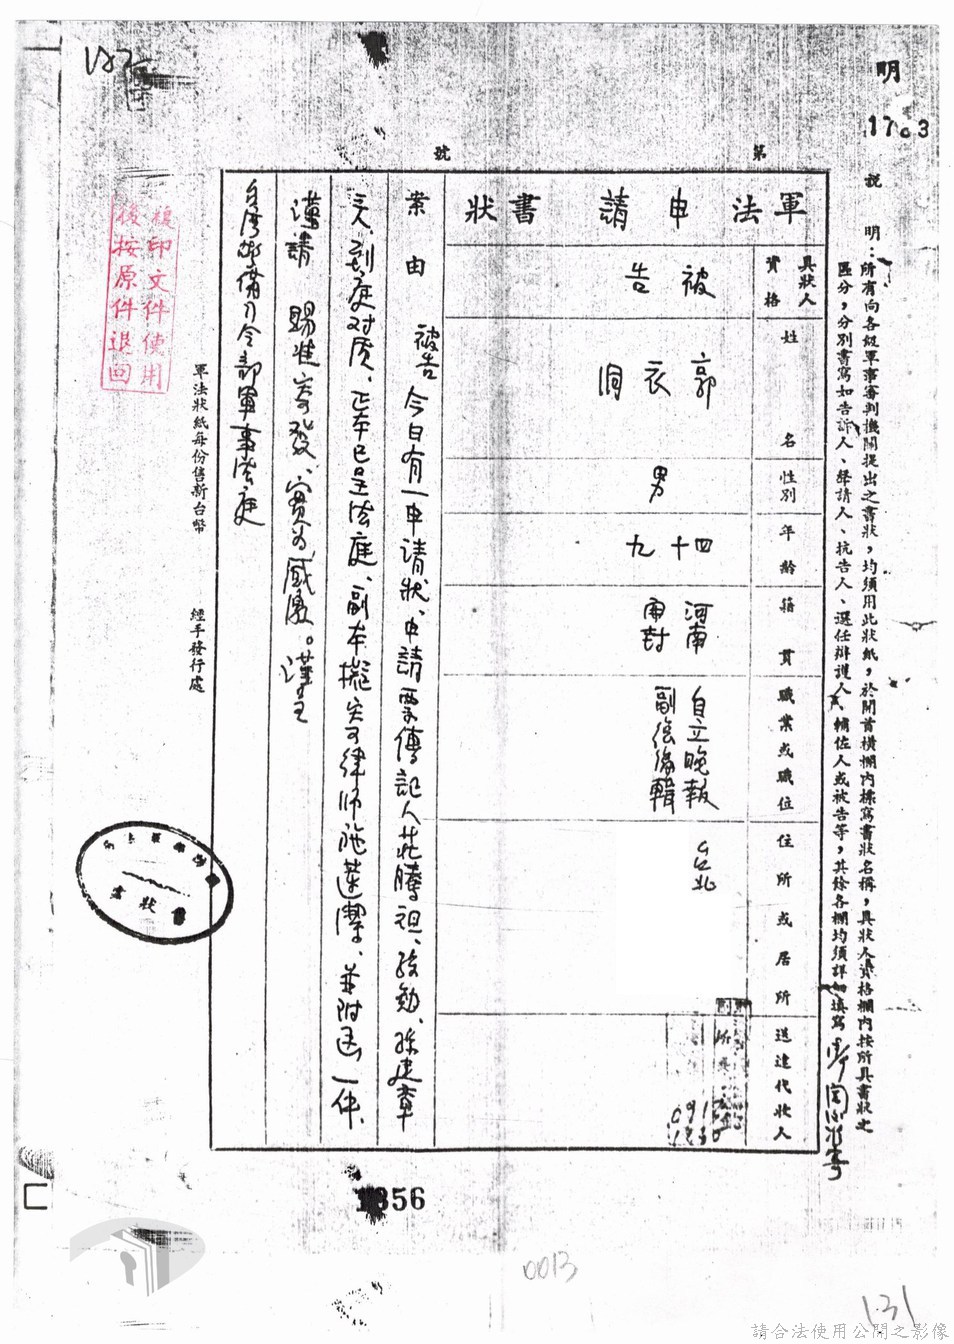 明
1703
第　　　　號
說　明：所有向各級軍事審判機關提出之書狀，均須用此狀紙，於開首橫欄內標寫書狀名稱，具狀人資格欄內按所具書狀之
區分，分別書寫如告訴人、聲請人、抗告人、選任辯護人、輔佐人或被告等，其餘各欄均須詳細填寫
軍法申請書狀
具狀人資格
被告
姓名
郭衣洞
性別
男
年齡
四十九
籍貫
河南開封
職業或職位
自立晚報
副總編輯
住所或居所
台北
送達代狀人
案由
被告今日有一申請狀、申請票傳記人莊騰祖、孫建章
三人到庭对质、正本已呈法庭、副本擬寄律师、並附函一件、
謹請　賜准寄發、實為感激。謹呈
台灣警備司令部軍事法庭
軍法狀紙每份售新台幣　　經手發行處
複印文件使用
後按原件退回
書狀
1356
0013
131
請合法使用公開之影像